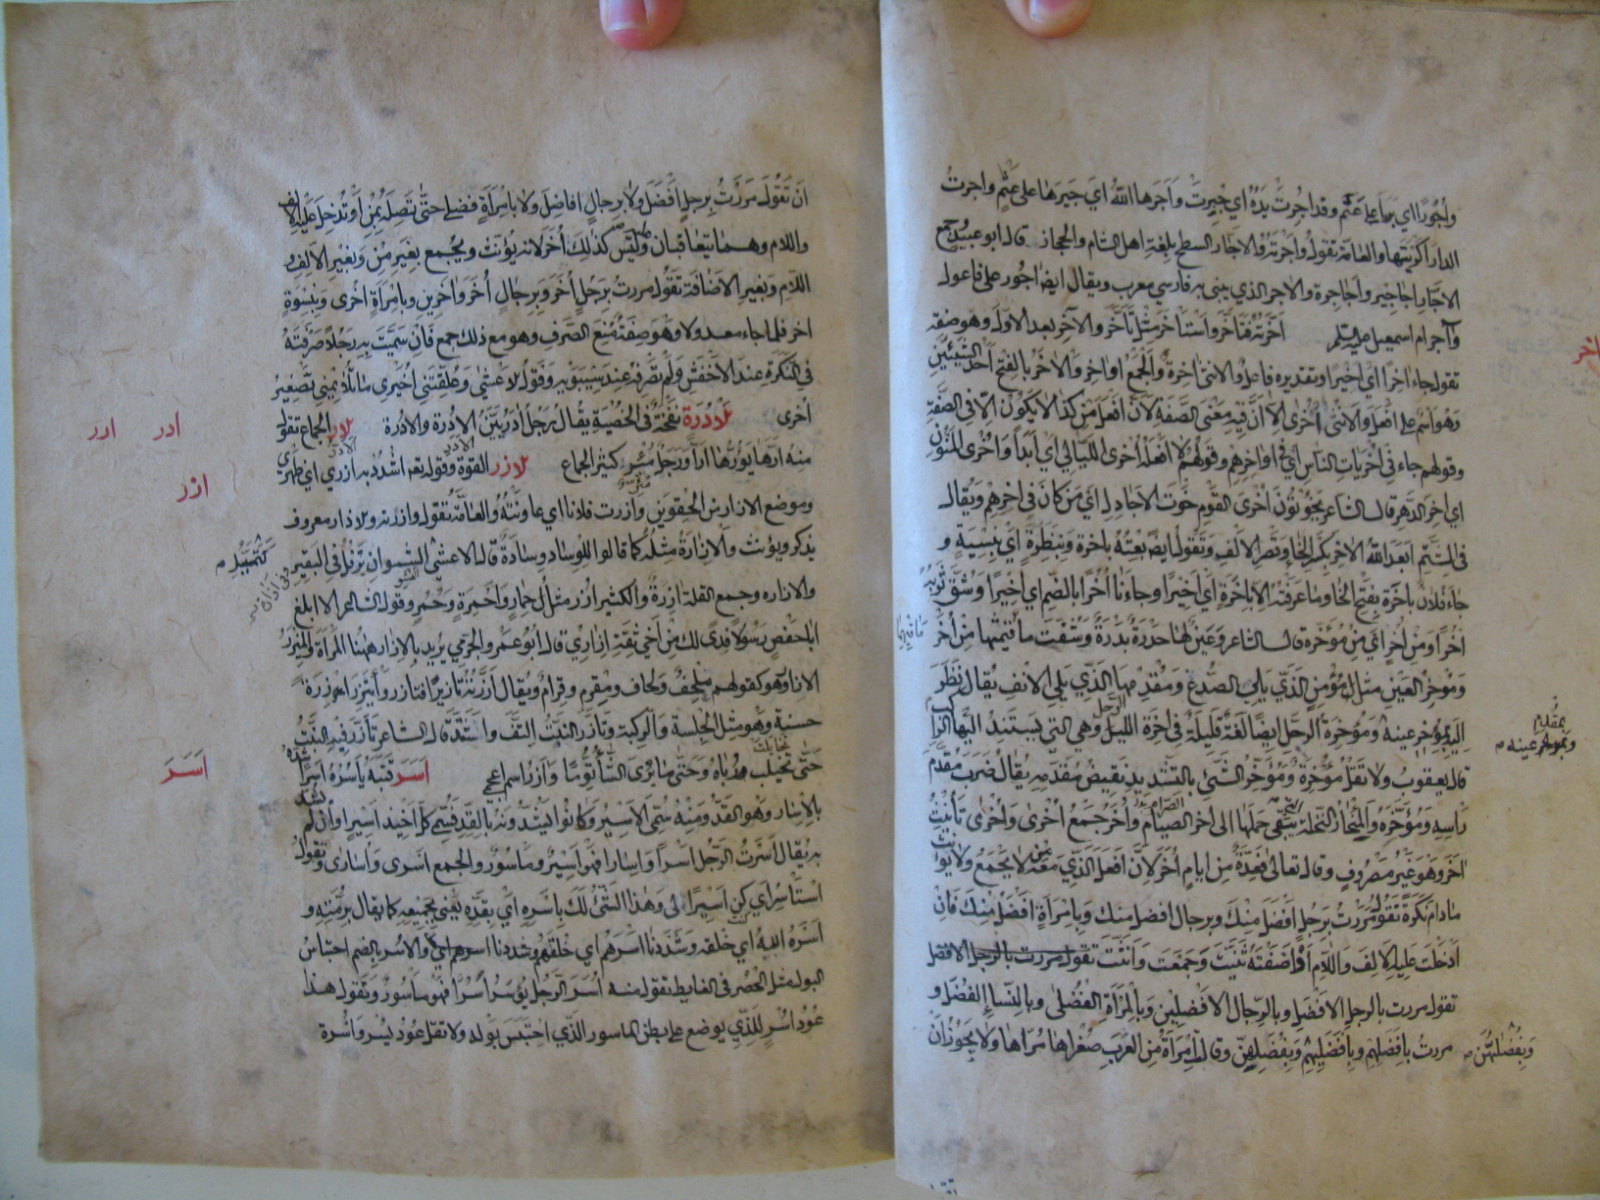 وأجورا اي برأ على عثم وقد اجرت يده اي جبرت وآجرها الله اي جبرها على عثم واجرت
الدار أكريتها والعامة تقول واجرته والاجار السطح بلغة اهل الشام والحجاز قال ابو عبيد وجمع
الاجار اجاجير واجاجرة والاجر الذي يبنى به فارسي معرب ويقال ايضا اجور على فاعول
وآجر ام اسمعيل عليه السلم اخرته فتأخر واستأخر مثل تأخر والآخر بعد الاول وهو صفة
اخر
تقول جاء اخرا اي اخيرا وتقديره فاعل والانثى اخرة والجمع اواخر والاخر بالفتح احد الشيئين
وهو اسم على افعل والانثى اخرى الا ان فيه معنى الصفة لان افعل من كذا لا يكون الا في الصفة
وقولهم جاء في اخريات الناس اي في اواخرهم وقولهم لا افعله اخرى الليالي اي ابدا واخرى المنون
اي اخر الدهر قال الشاعر اخرى القوم خوت الاجادل اي من كان في اخرهم ويقال
في الشتم ابعد الله الاخر بكسر الخاء وقصر الالف وتقول ايضا بعته باخرة وبنظرة اي بنسية و
جاء فلان باخرة بفتح الخاء وما عرفته الا باخرة اي اخيرا وجاءنا أخرا بالضم اي اخيرا وشق ثوبه
اخرا ومن اخر اي من مؤخره قال الشاعر وعين لها حدرة بدرة وشقت مآقيهما من أخر
مآقيهما
ومؤخر العين مثل المؤمن الذي يلي الصدغ ومقدمها الذي يلي الانف يقال نظر
بمقدم
وبمؤخر عينه
اليه بمؤخر عينه ومؤخرة الرحل ايضا لغة قليلة في اخرة الرحل وهي التي يستند اليها الراكب
قال يعقوب ولا تقل مؤخرة ومؤخر الشئ بالتشديد نقيض مقدمه يقال ضرب مقدم
راسه ومؤخره والمئخار النخلة التي يبقى حملها الى اخر الصرام واخر جمع اخرى واخرى تأنيث
اخر وهو غير مصروف وقال تعالى فعدة من ايام أخر لان افعل الذي معه من لا يجمع ولا يؤنث
مادام نكرة تقول مررت برجل افضل منك وبرجال افضل منك وبامرأة افضل منك فان
ادخلت عليه الالف واللام او اضفته ثنيت وجمعت وانثت تقول مررت بالرجل الافضل
تقول مررت بالرجل الافضل وبالرجال الافضلين وبالمرأة الفضلى وبالنساء الفضل و
مررت بافضلهم وبافضليهم وبفضلهن وقالت امرأة من العرب صغراها مراها ولا يجوز ان
وبفضلهن
ان تقول مررت برجل أفضل ولا برجال افاضل ولا بامرأة فضلى حتى تصله بمن او تدخل عليه الالف
واللام وهما يتعاقبان وليس كذلك أخر لانه يؤنث ويجمع بغير من وبغير الالف و
اللام وبغير الاضافة تقول مررت برجل أخر وبرجال أخر واخرين وبامرأة اخرى وبنسوة
اخر فلما جاء معدولا وهو صفة منع الصرف وهو مع ذلك جمع فان سميت به رجلا صرفته
في النكرة عند الاخفش ولم تصرفه عند سيبويه وقول الاعشى وعلقتني أخيرى ما تلائمني تصغير
اخرى الادرة نفخة في الخصية يقال رجل آدر بين الأدرة والادرة الار الجماع تقول
ادر ارر
منه ارها يؤرها ارا ورجل مئر كثير الجماع الازر القوة وقوله تعالى اشدد به ازري اي ظهري
ازر
وموضع الازار من الحقوين وآزرت فلانا اي عاونته والعامة تقول وازرته والازار معروف
يذكر ويؤنث والازارة مثله كما قالوا للوساد وسادة قال الاعشى كتميل النشوان يرفل في البقير
كتميل
والازاره وجمع القلة ازرة والكثير ازر مثل حمار واحمرة وحمر وقول الشاعر الا ابلغ
ابا حفص رسولا فدى لك من اخي ثقة ازاري قال ابو عمرو الجرمي يريد بالازار ههنا المرأة والمئزر
الازار وهو كقولهم ملحف ولحاف ومقرم وقرام ويقال ازرته تازيرا فتأزر وأتزر ازرة
حسنة وهو مثل الجلسة والركبة وتأزر النبت التف واشتد قال الشاعر تأزر فيه النبت
حتى تخيلت رباه وحتى ما ترى الشاء نوما وآزر اسم اعجمي اسر قتبه يأسره اسرا شده
اسر
بالاسار وهو القد ومنه سمي الاسير وكانوا يشدونه بالقد فسمي كل اخيذ اسيرا وان لم يشد
به يقال أسرت الرجل اسرا واسارا فهو اسير ومأسور والجمع اسرى واسارى وتقول
استأسر اي كن اسيرا لي وهذا الشئ لك باسره اي بقده يعني بجميعه كما يقال برمته و
اسره الله اي خلقه وشددنا اسرهم اي خلقهم والاسر بالضم احتباس
البول مثل الحصر في الغايط تقول منه أسر الرجل يؤسر أسرا فهو مأسور وتقول هذا
عود اسر للذي يوضع على بطن المأسور الذي احتبس بوله ولا تقل عود يسر واسرة